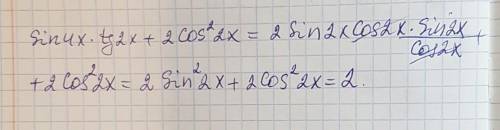 sin4x·tg2x + 2cos²2x = 2sin2x cos2x · sin2x/cos2x +
+ 2cos²2x = 2sin²2x + 2cos²2x = 2.